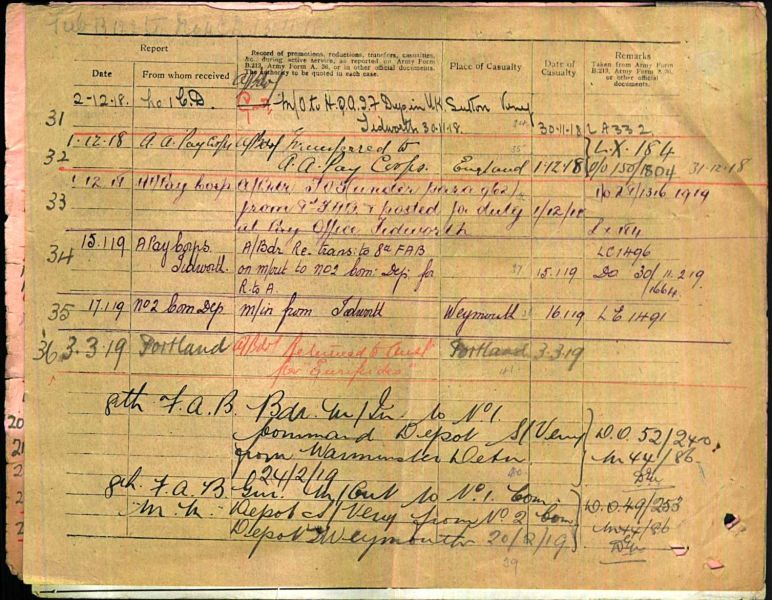 Report
Record of promotions, reductions, transfers, casualties, &c. during active service, as reported on Army Form B.213, Army Form A. 36, or in other official documents. The authority to be quoted in each case.
Place of Casualty
Date of Casualty
Remarks
Taken from Army Form B.213, Army Form A.36, or other official documents.
Date
From whom received
A/Bdr
31
2-12-18.
No 1 C.D.
M/O to H.Q. Dep in UK Sutton Veny
Tidworth 30.11.18.
30-11-18
LA 332
32
1-12-18
A.A. Pay Corps
A/Bdr Transferred to
A.A. Pay Corps.
England
1-12-18
L.X. 184
D/O 150/1804 31-12-18
33
1 12 18
Pay Corp
A/Bdr TOS under para
from 8th FAB & posted for duty
1/12/18
at Pay Office Tidworth
Lx 184
34
15.1.19
A Pay Corps.
Tidworth.
A/Bdr Re-trans. to 8th FAB
on m/out to No 2 Com: Dep: for
R. to A.
37
15.1.19
LC 1496
DO 30/11.2.19
1664.
35
17.1.19
No 2 Com Dep
M/in from Tidworth
Weymouth
16.1.19
LE 1491
36
3.3.19
Portland
A/Bdr Returned to Aust
per "Euripides"
Portland
3.3.19
8th F.A.B.
Bdr. M/In to No 1
Command Depot S/Veny
from Warminster Detn.
24/2/19
D.O. 52/240.
M 44/86
8th F.A.B
Gnr. M/Out to No 1. Com.
Depot S/Veny from No 2 Com
Depot Weymouth 20/2/19
D.O. 49/253
M 44/86